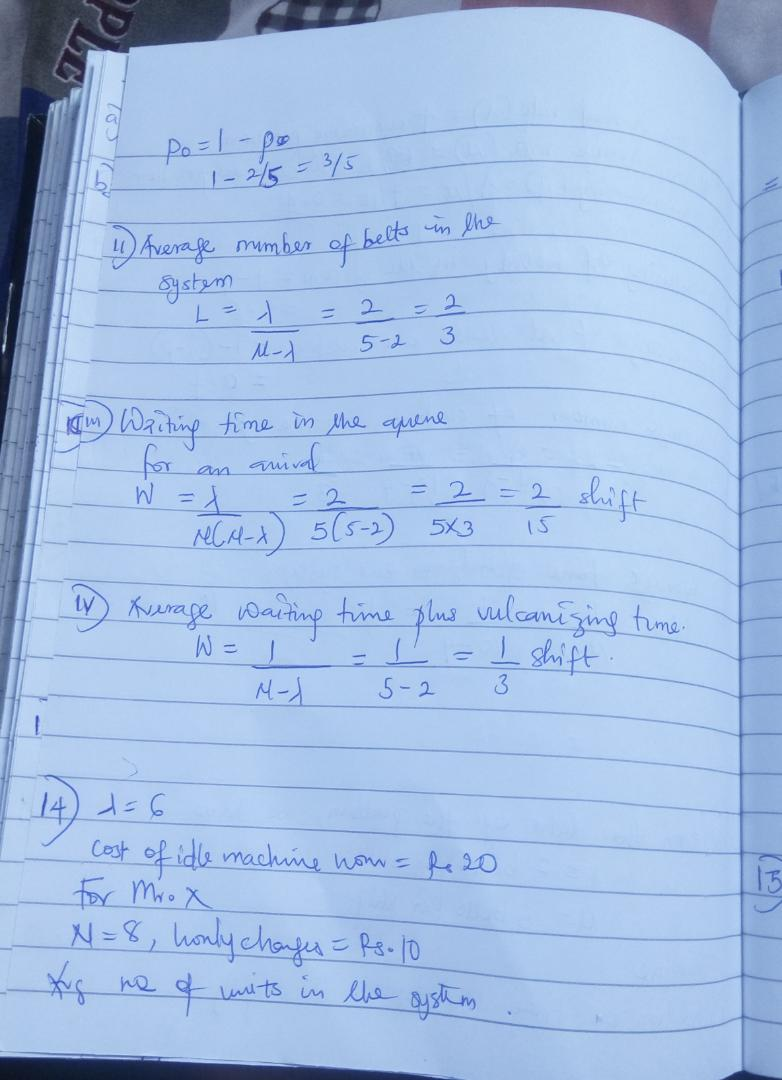 PPLE
5) (a)
P₀ = 1 - p
1 - 2/5 = 3/5
ii) Average number of belts in the
system
L = λ/(M-λ) = 2/(5-2) = 2/3
iii) Waiting time in the queue
for an arrival
W = λ/(M(M-λ)) = 2/(5(5-2)) = 2/(5x3) = 2/15 shift
IV) Average waiting time plus vulcanizing time.
W = 1/(M-λ) = 1/(5-2) = 1/3 shift.
14) λ = 6
Cost of idle machine hour = Rs 20
For Mr. X
M = 8, hourly charges = Rs. 10
Avg no of units in the system.
15)